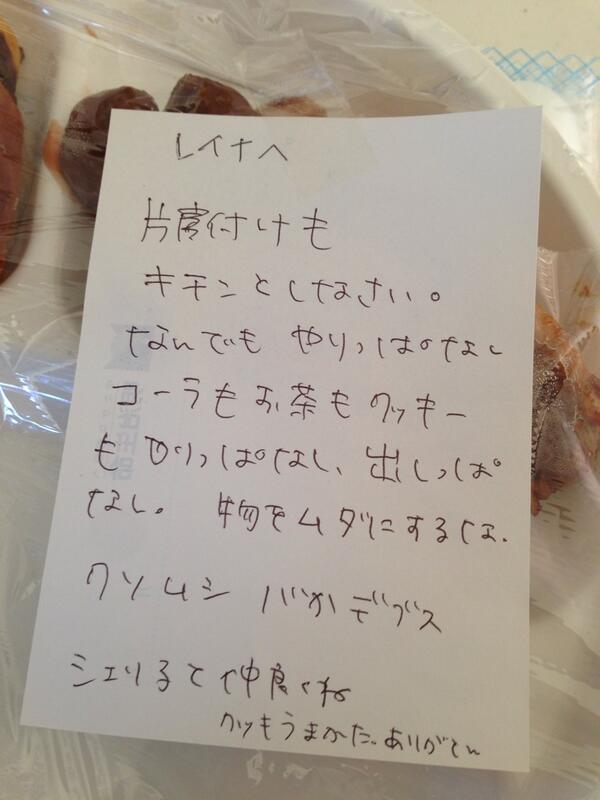 レイナへ
片房付けも
キチンとしなさい。
なんでも やりっぱなし
コーラもお茶もクッキー
もやりっぱなし、出しっぱ
なし。 物をムダにするな.
クソムシ バカデブス
シェリ子と仲良くね
クッもうまかた。ありがとん